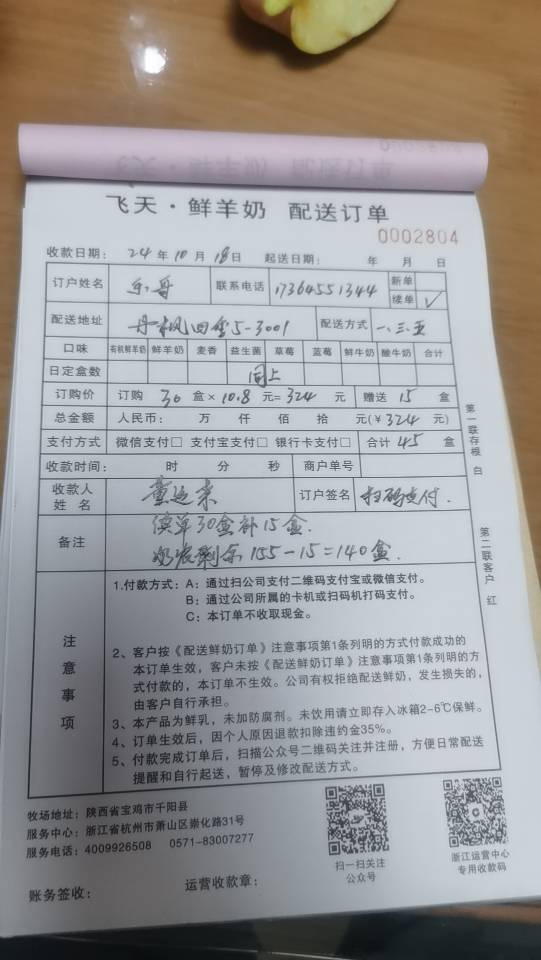 飞天·鲜羊奶 配送订单
0002804
收款日期: 24 年 10 月 18 日 起送日期: 年 月 日
订户姓名 联系电话 17364551344 新单
续单 ✓
配送地址 丹枫四季5-3001 配送方式 一.三.五
口味 有机鲜羊奶 鲜羊奶 麦香 益生菌 草莓 蓝莓 鲜牛奶 酸牛奶 合计
日定盒数 同上
订购价 订购 30 盒× 10.8 元= 324 元 赠送 15 盒
总金额 人民币: 万 仟 佰 拾 元(¥ 324 元)
支付方式 微信支付□ 支付宝支付□ 银行卡支付□ 合计 45 盒
收款时间: 时 分 秒 商户单号
收款人
姓 名 订户签名 扫码支付.
备注 续单30盒补15盒.
奶农剩余 155-15=140盒.
第一联存根 白
第二联客户 红
注意事项
1.付款方式: A: 通过扫公司支付二维码支付宝或微信支付。
B: 通过公司所属的卡机或扫码机打码支付。
C: 本订单不收取现金。
2、客户按《配送鲜奶订单》注意事项第1条列明的方式付款成功的
本订单生效,客户未按《配送鲜奶订单》注意事项第1条列明的方
式付款的,本订单不生效。公司有权拒绝配送鲜奶,发生损失的,
由客户自行承担。
3、本产品为鲜乳,未加防腐剂。未饮用请立即存入冰箱2-6℃保鲜。
4、订单生效后,因个人原因退款扣除违约金35%。
5、付款完成订单后,扫描公众号二维码关注并注册,方便日常配送
提醒和自行起送,暂停及修改配送方式。
牧场地址: 陕西省宝鸡市千阳县
服务中心: 浙江省杭州市萧山区崇化路31号
服务电话: 4009926508 0571-83007277
扫一扫关注
公众号
浙江运营中心
专用收款码
账务签收: 运营收款章: